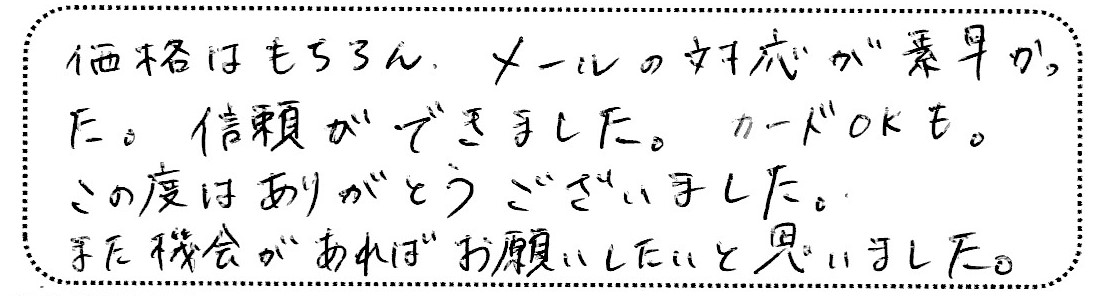 価格はもちろん、メールの対応が素早かっ
た。信頼ができました。カードOKも。
この度はありがとうございました。
また機会があればお願いしたいと思いました。